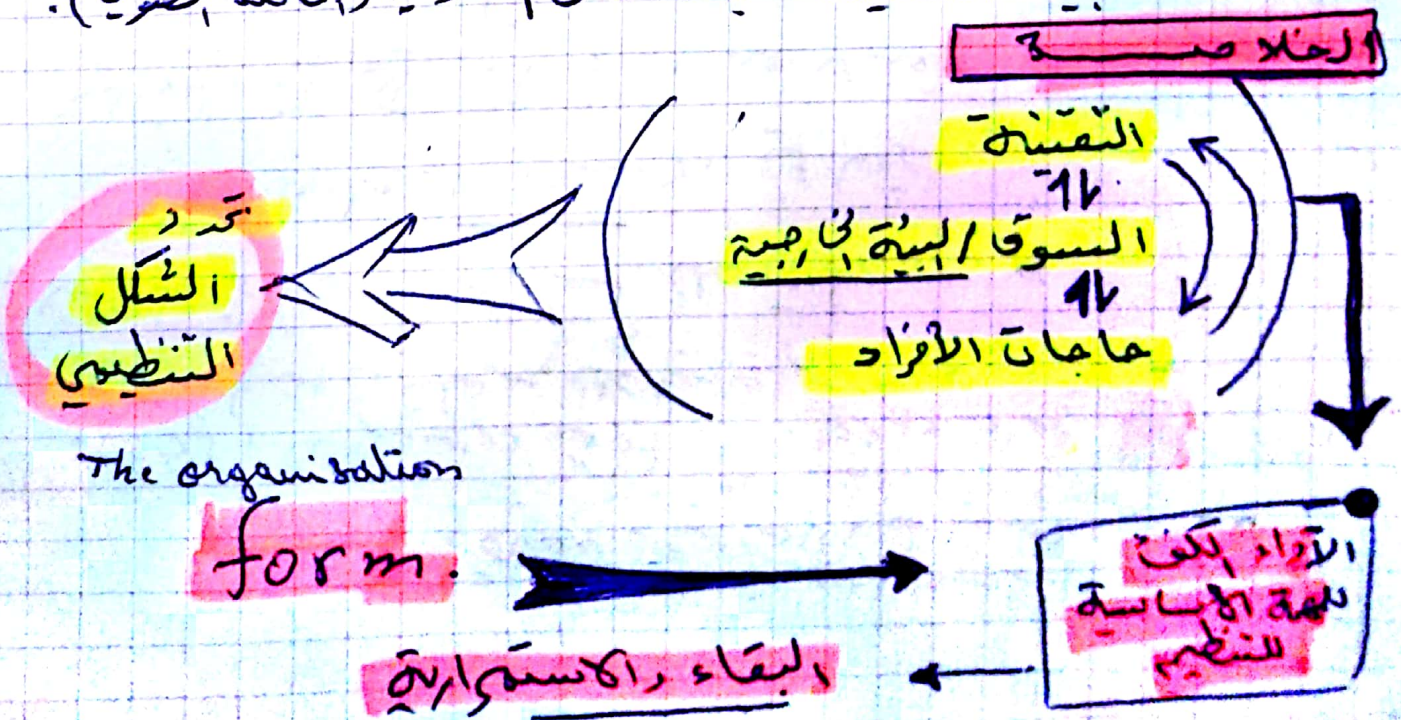 الخلاصة
التقنية
السوق / البيئة الخارجية
حاجات الأفراد
تحدد
الشكل
التنظيمي
The organisation
form.
الأداء الكفئ
للمهمة الأساسية
للتنظيم
البقاء والاستمرارية